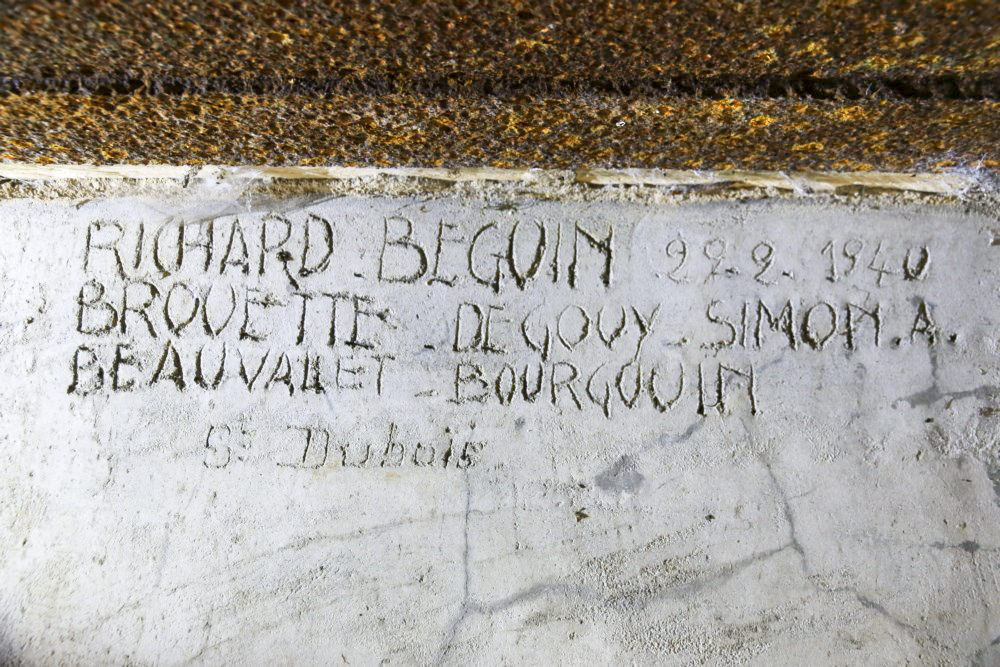 RICHARD - BEGUIN 22.2.1940
BROUETTE - DEGOUY - SIMON.A.
BEAUVALLET - BOURGOUIN
St Dubuis